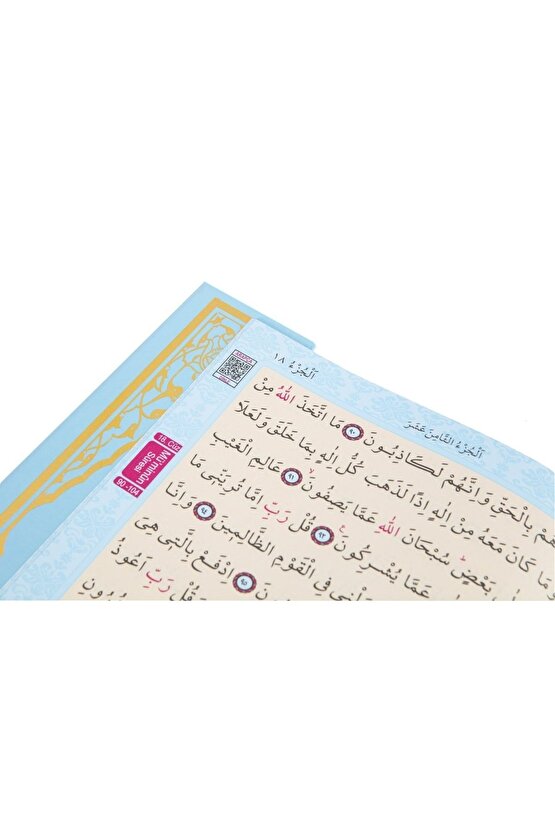 اَلْجُزْءُ ١٨
اَلْجُزْءُ الثَّامِنَ عَشَرَ
ARAPÇA
18. Cüz
Mü'minûn
Sûresi
90 -104
بِالْحَقِّ وَاِنَّهُمْ لَكَاذِبُونَ ٩٠ مَا اتَّخَذَ اللّٰهُ مِنْ
مَا كَانَ مَعَهُ مِنْ اِلٰهٍ اِذًا لَذَهَبَ كُلُّ اِلٰهٍ بِمَا خَلَقَ وَلَعَلَا
بَعْضٍ سُبْحَانَ اللّٰهِ عَمَّا يَصِفُونَ ٩١ عَالِمِ الْغَيْبِ
عَمَّا يُشْرِكُونَ ٩٢ قُلْ رَبِّ اِمَّا تُرِيَنِّى مَا
فِى الْقَوْمِ الظَّالِمِينَ ٩٤ وَاِنَّا
٩٥ اِدْفَعْ بِالَّتِى هِىَ
رَبِّ اَعُوذُ